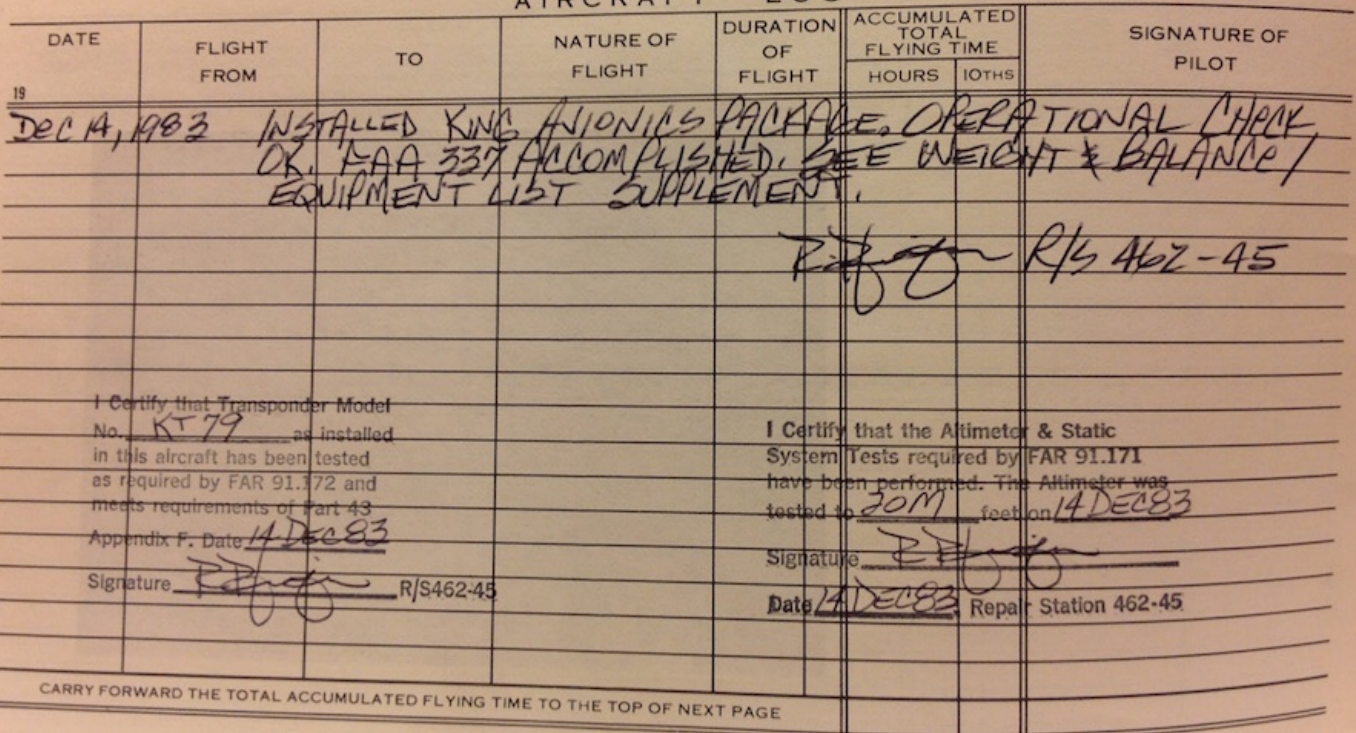 AIRCRAFT LOG
DATE
FLIGHT FROM
TO
NATURE OF FLIGHT
DURATION OF FLIGHT
ACCUMULATED TOTAL FLYING TIME
HOURS
10THS
SIGNATURE OF PILOT
19
DEC 14, 1983 INSTALLED KING AVIONICS PACKAGE. OPERATIONAL CHECK
OK. FAA 337 ACCOMPLISHED. SEE WEIGHT & BALANCE /
EQUIPMENT LIST SUPPLEMENT.
R/S 462-45
I Certify that Transponder Model
No. KT 79 as installed
in this aircraft has been tested
as required by FAR 91.172 and
meets requirements of Part 43
Appendix F. Date 14 DEC 83
Signature R/S462-45
I Certify that the Altimeter & Static
System Tests required by FAR 91.171
have been performed. The Altimeter was
tested to 20M feet on 14 DEC 83
Signature
Date 14 DEC 83 Repair Station 462-45
CARRY FORWARD THE TOTAL ACCUMULATED FLYING TIME TO THE TOP OF NEXT PAGE